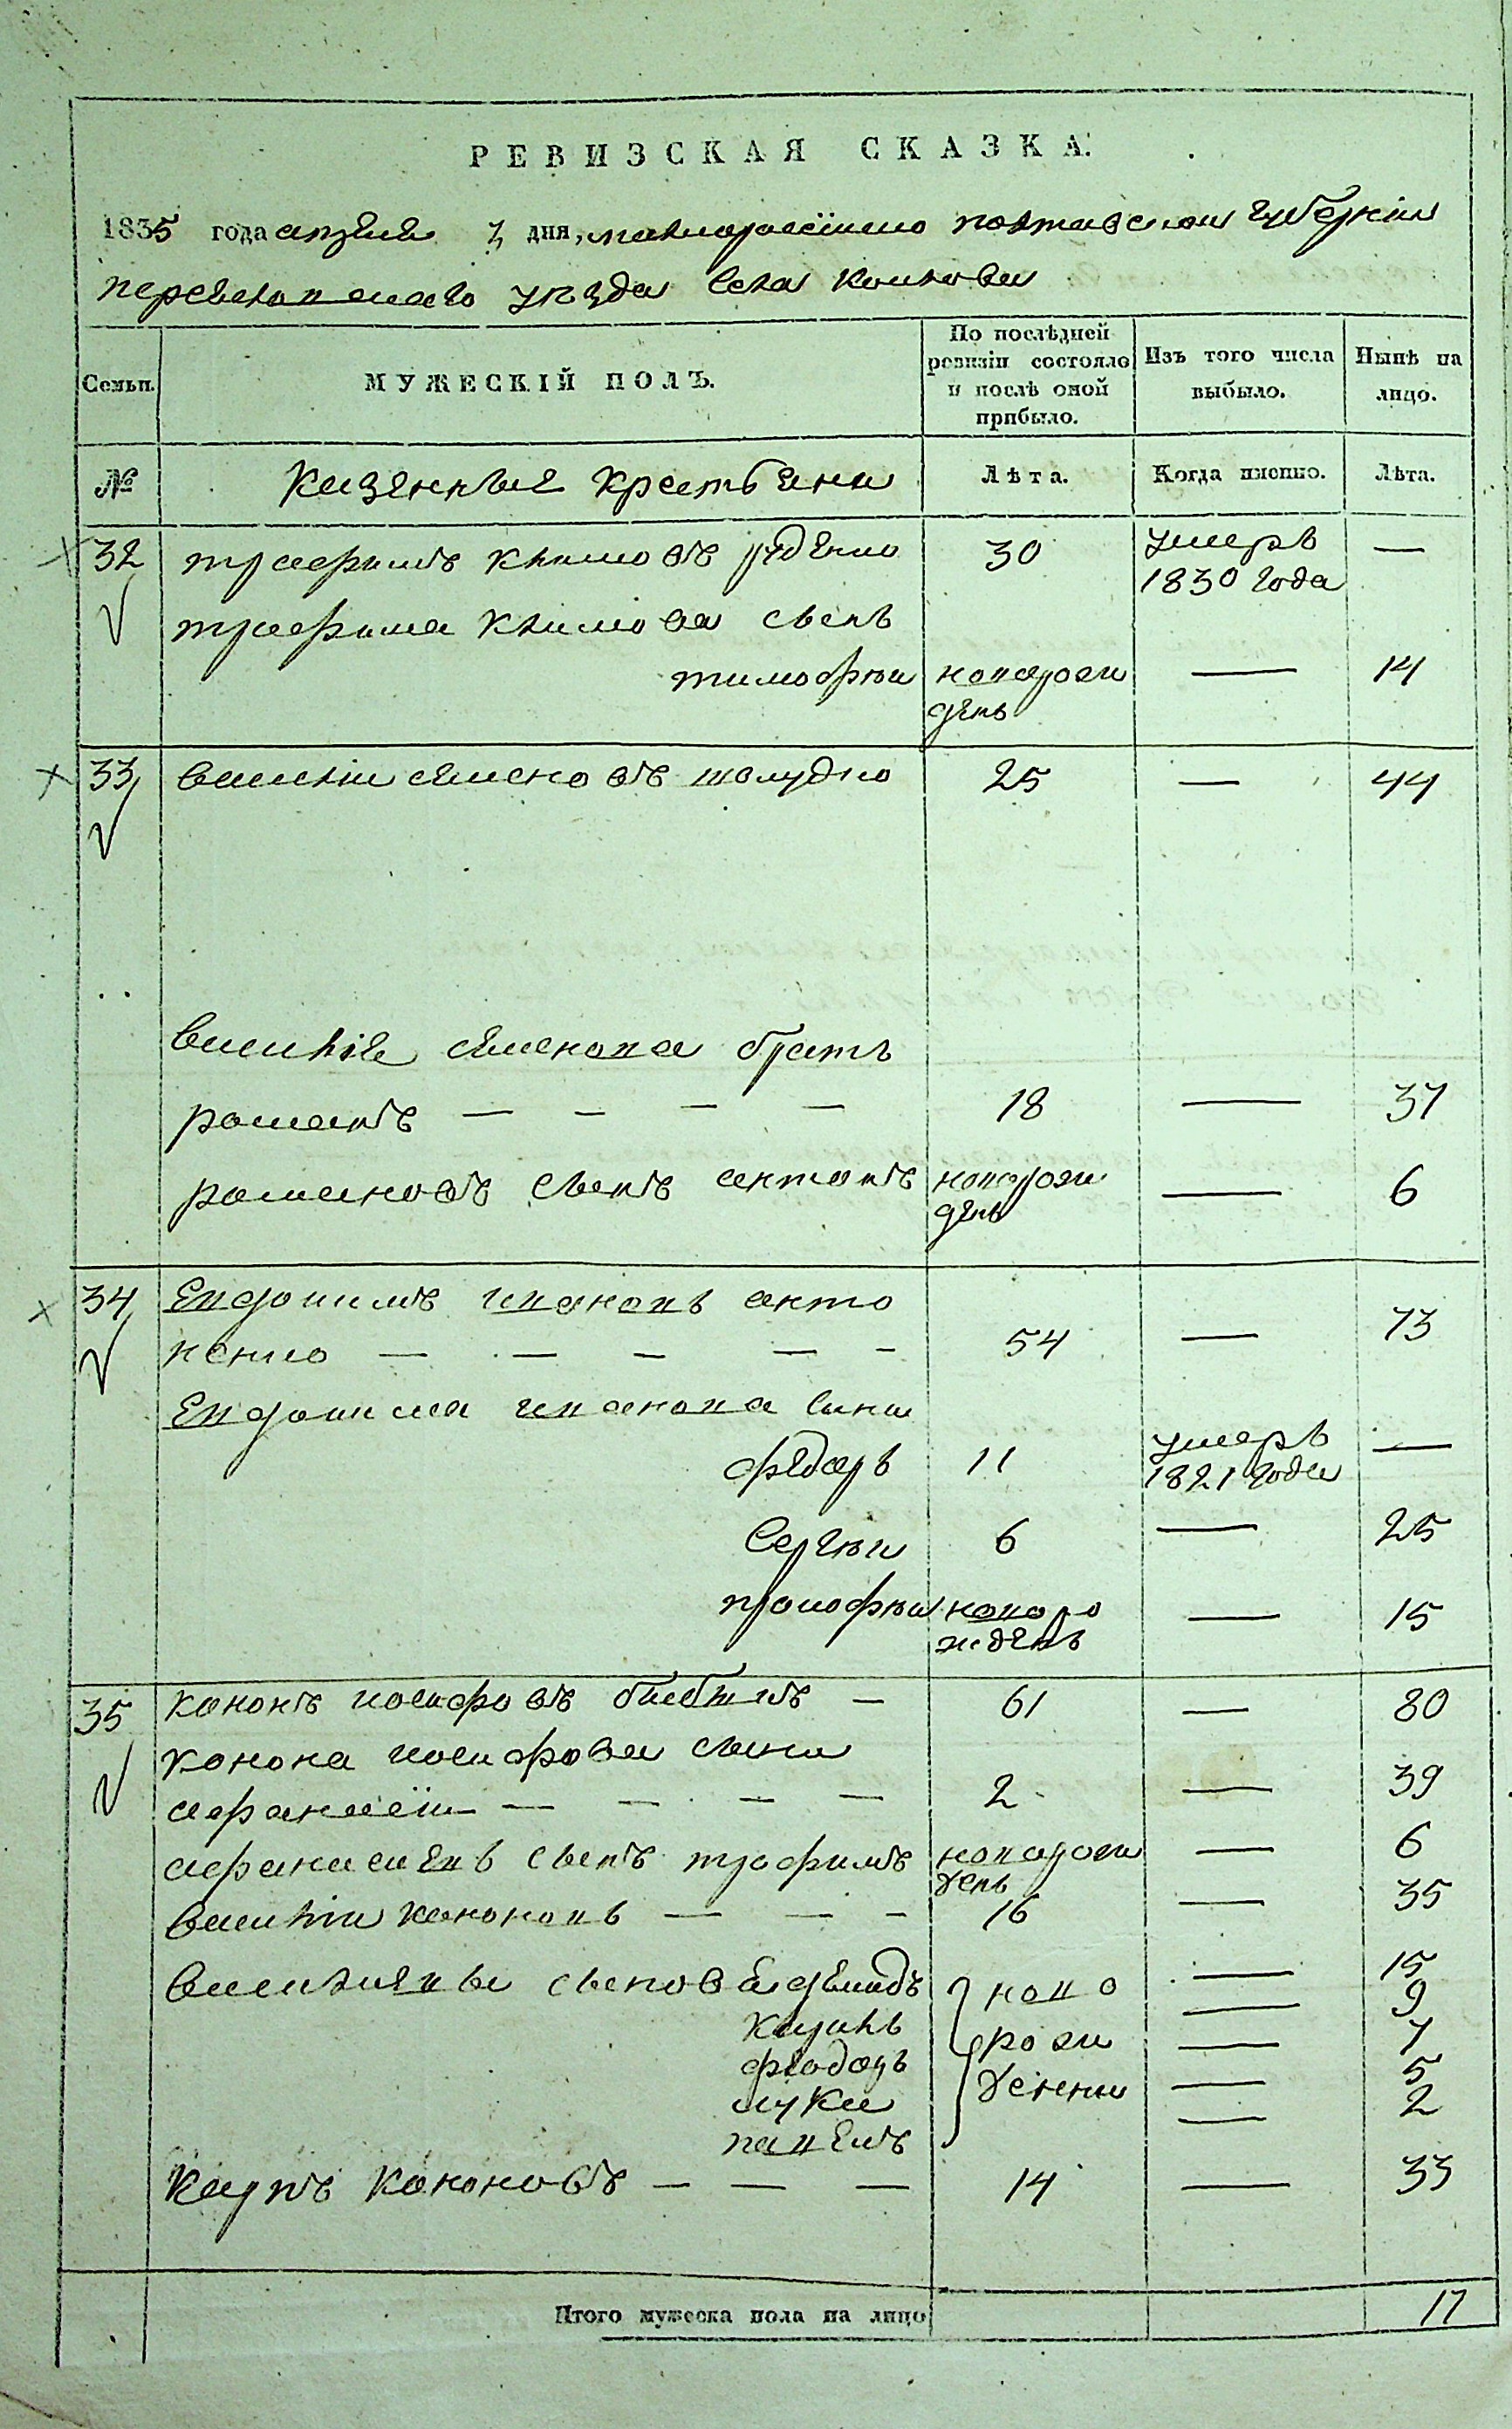 РЕВИЗСКАЯ СКАЗКА.
1835 года апреля дня, малороссийско полтавской губернии
переволочанского уезда села
Семьи. МУЖЕСКІЙ ПОЛЪ. По послѣдней ревизіи состояло и послѣ оной прибыло. Изъ того числа выбыло. Нынѣ на лицо.
№ Казенные крестьяне Лѣта. Когда именно. Лѣта.
32 трофимъ климовъ руденко 30 умеръ 1830 года —
трофима климова сынъ
тимофѣй новорожденъ — 14
33 василій семеновъ 25 — 44
василіе семенова братъ
романъ — — — — 18 — 37
романовъ сынъ антонъ новорожденъ — 6
34 Евдокимъ ивановъ анто
ненко — — — — — 54 — 73
Евдокима иванова сыни
федоръ 11 умеръ 1821 года —
Сергѣй 6 — 25
прокофѣй новорожденъ — 15
35 кононъ иосифовъ — 61 — 80
конона иосифова сыни
афанасій — — — — 2 — 39
афанасиевъ сынъ трофимъ новорожденъ — 6
василій кононовъ — — — 16 — 35
василиевы сыновя демидъ новорожденни — 15
кирилъ — 9
феодоръ — 7
лука — 5
павелъ — 2
карпъ кононовъ — — — 14 — 33
Итого мужеска пола на лицо 17